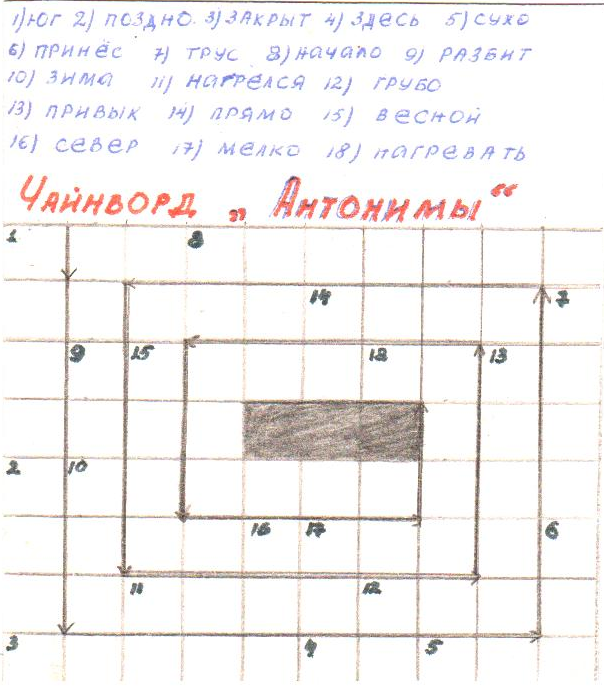 1) ЮГ 2) ПОЗДНО 3) ЗАКРЫТ 4) ЗДЕСЬ 5) СУХО
6) ПРИНЁС 7) ТРУС 8) НАЧАЛО 9) РАЗБИТ
10) ЗИМА 11) НАГРЕЛСЯ 12) ГРУБО
13) ПРИВЫК 14) ПРЯМО 15) ВЕСНОЙ
16) СЕВЕР 17) МЕЛКО 18) НАГРЕВАТЬ
ЧАЙНВОРД „АНТОНИМЫ“
1 8
14 7
9 15 12 13
2 10
16 17 6
11 12
3 4 5